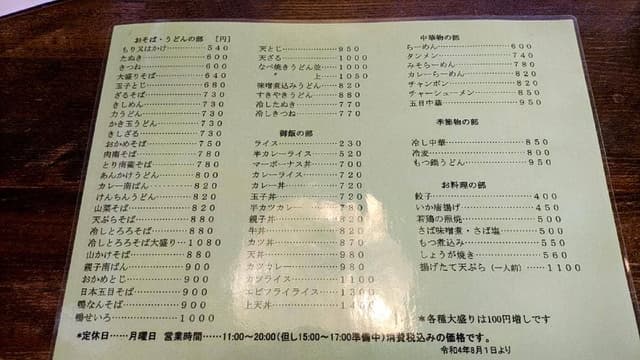 おそば・うどんの部 [円]
もり又はかけ……540
たぬき……600
きつね……600
大盛りそば……640
玉子とじ……680
ざるそば……730
きしめん……730
力うどん……730
かき玉うどん……730
きしざる……730
おかめそば……750
肉南そば……820
とり南蛮そば……820
あんかけうどん……800
カレー南ばん……820
けんちんうどん……820
山菜そば……820
天ぷらそば……880
冷しとろろそば……880
冷しとろろそば大盛り……1080
山かけそば……880
親子南ばん……900
おかめとじ……900
日本五目そば……900
鴨なんそば……900
鴨せいろ……1000
天とじ……950
天ざる……1000
なべ焼きうどん並……1000
〃 上……1050
味噌煮込みうどん……820
すきやきうどん……880
冷したぬき……770
冷しきつね……770
御飯の部
ライス……230
半カレーライス……520
マーボーナス丼……700
カレーライス……720
カレー丼……720
玉子丼……720
半カツカレー……780
親子丼……820
牛丼……820
カツ丼……870
天丼……980
カツカレー……980
カツライス……1000
エビフライライス……1300
上天丼……1400
中華物の部
らーめん……600
タンメン……740
みそらーめん……780
カレーらーめん……820
チャンポン……820
チャーシューメン……850
五目中華……850
季節物の部
冷し中華……850
冷麦……800
もつ鍋うどん……950
お料理の部
餃子……400
いか唐揚げ……450
若鶏の照焼……500
さば味噌煮・さば塩……500
もつ煮込み……550
しょうが焼き……560
揚げたて天ぷら(一人前)……1100
*各種大盛りは100円増しです
*定休日……月曜日 営業時間……11:00～20:00(但し15:00～17:00準備中)消費税込みの価格です。
令和4年8月1日より